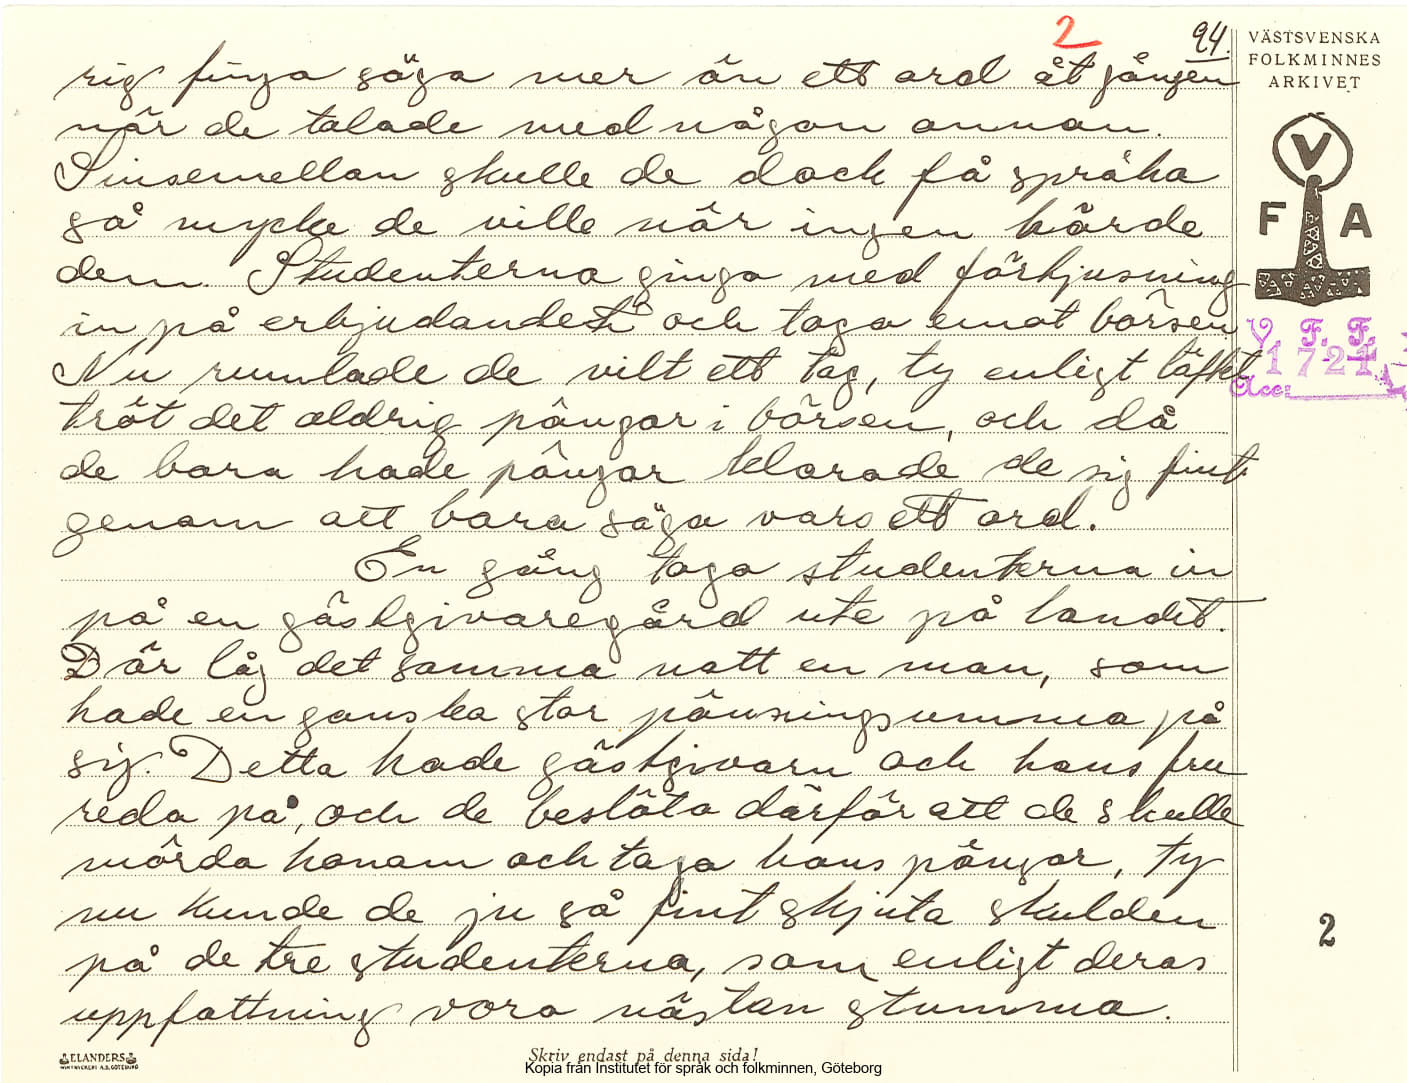 2 94.
VÄSTSVENSKA
FOLKMINNES
ARKIVET
V
F A
V. F. F.
1721
Acc:
rig finga säga mer än ett ord åt gången
när de talade med någon annan.
Sinsemellan skulle de dock få språka
så mycke de ville när ingen hörde
dem. Studenterna ginga med förtjusning
in på erbjudandet och toga emot börsen
Nu rumlade de vilt ett tag, ty enligt löfte
tröt det aldrig pängar i börsen, och då
de bara hade pängar klarade de sig fint
genom att bara säga vars ett ord.
En gång toga studenterna in
på en gästgivaregård ute på landet.
Där låg det samma natt en man, som
hade en ganska stor pänningsumma på
sig. Detta hade gästgivarn och hans fru
reda på, och de beslöto därför att de skulle
mörda honom och taga hans pängar, ty
nu kunde de ju så fint skjuta skulden
på de tre studenterna, som enligt deras
uppfattning voro nästan stumma.
2
ELANDERS
Skriv endast på denna sida!
Kopia från Institutet för språk och folkminnen, Göteborg